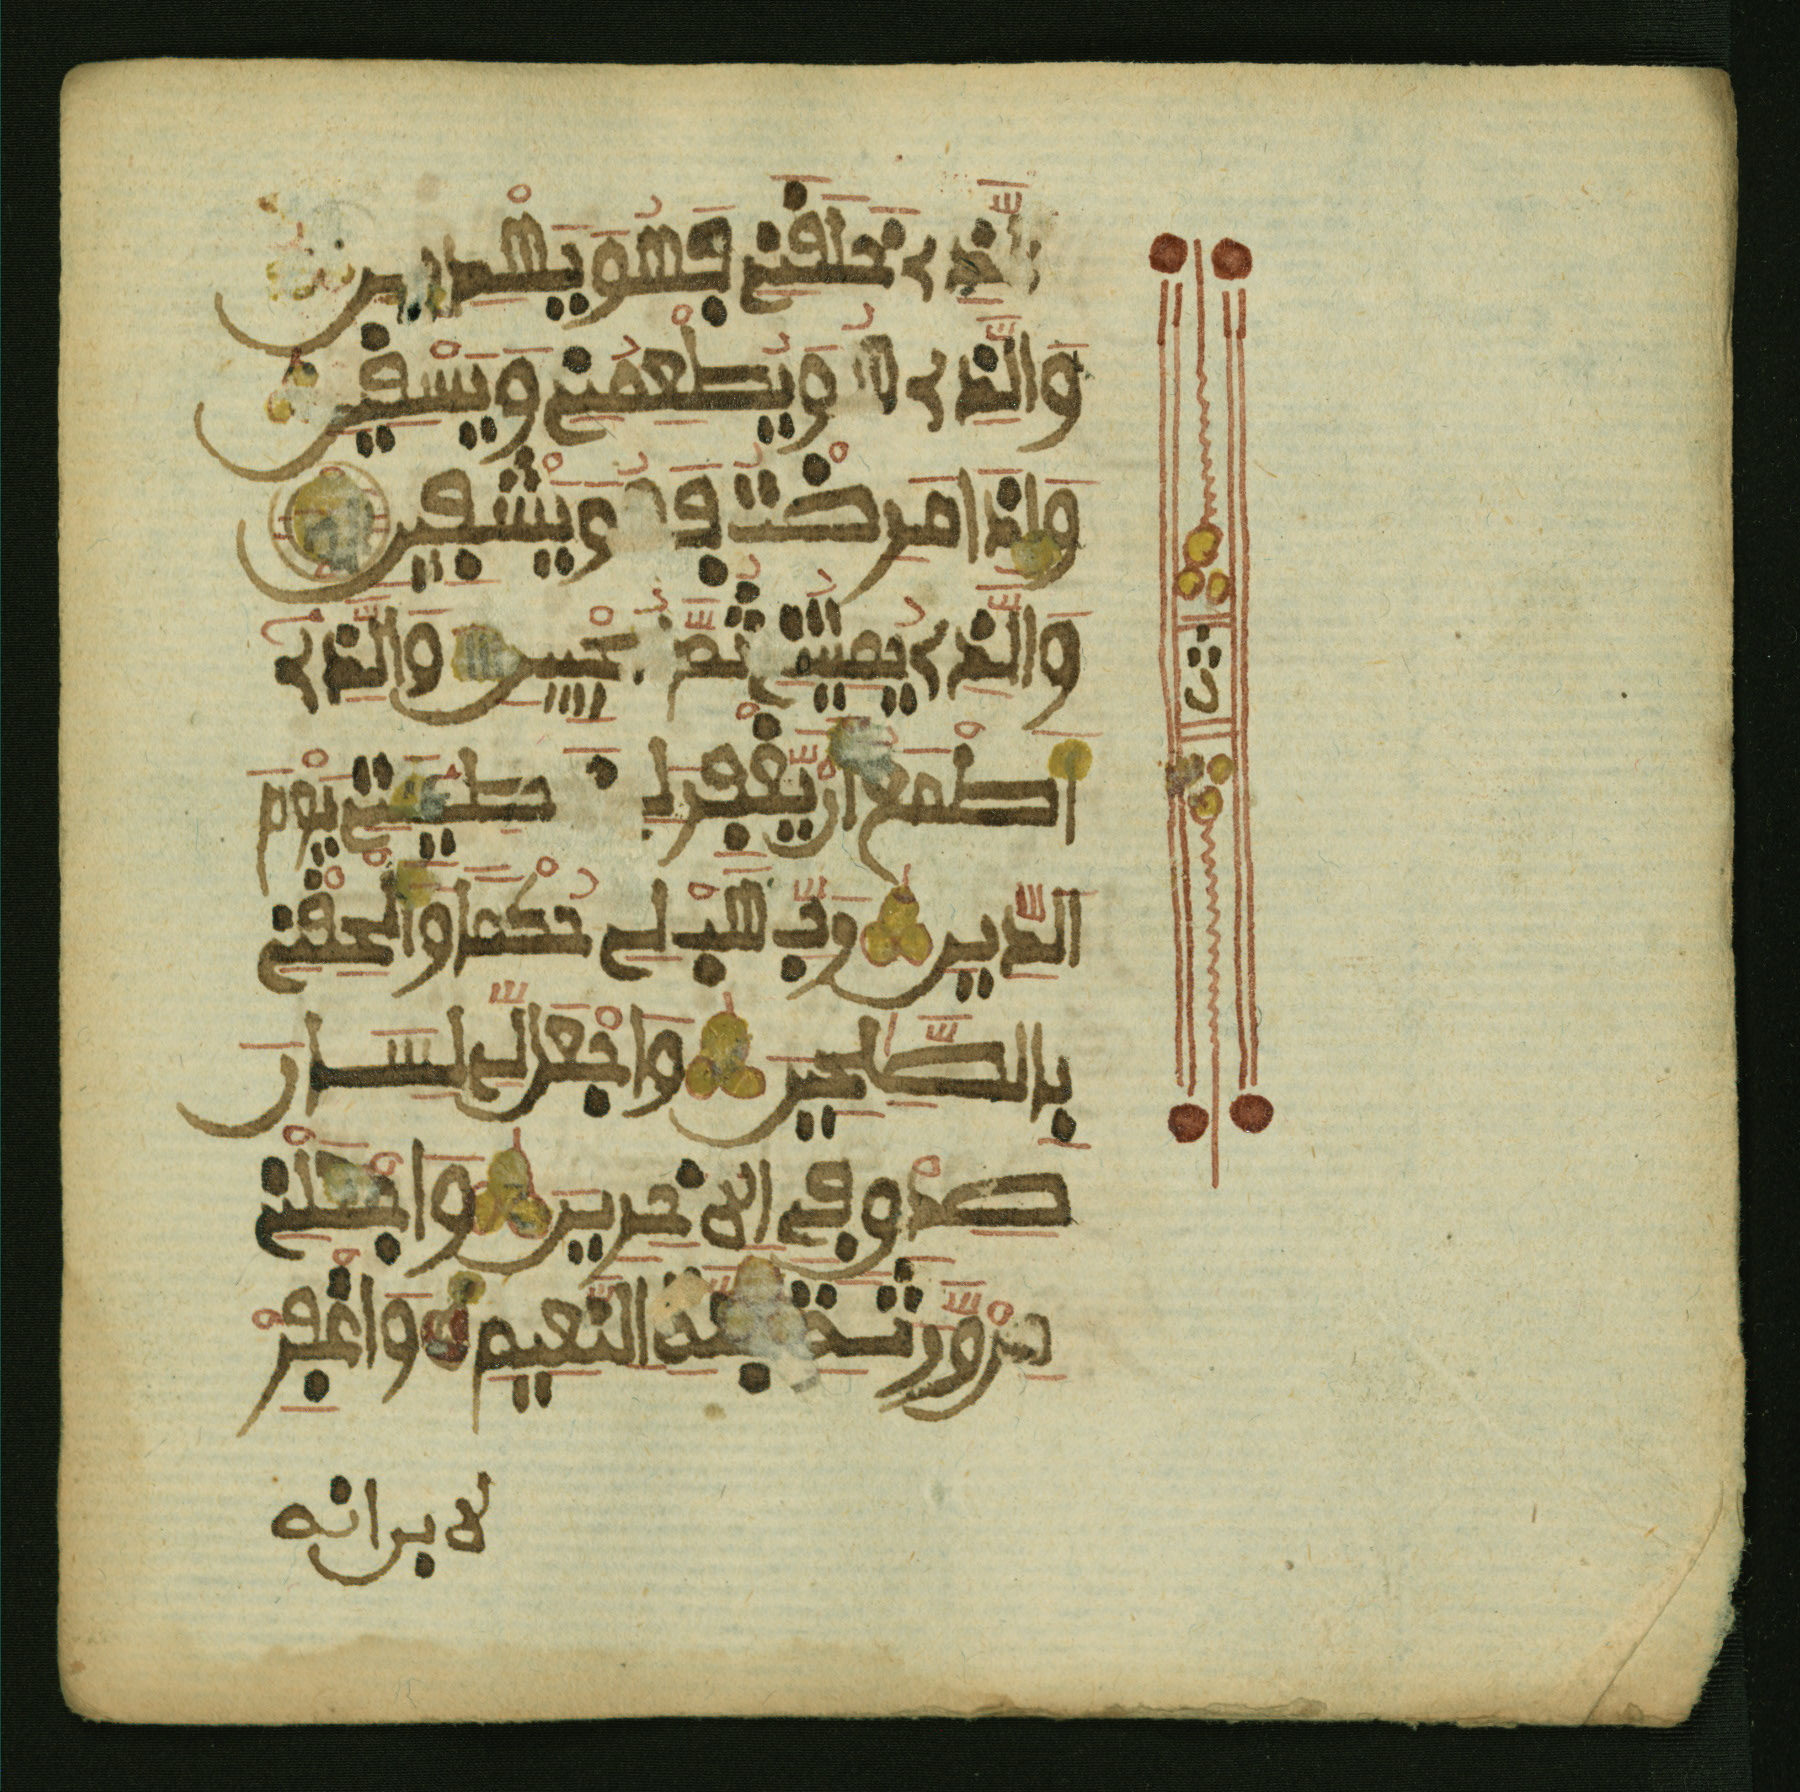 الذي خلقني فهو يهدين
والذي هو يطعمني ويسقين
واذا مرضت فهو يشفين
والذي يميتني ثم يحيين والذي
اطمع ان يغفر لي خطيئتي يوم
الدين رب هب لي حكما والحقني
بالصلحين واجعل لي لسان
صدق في الاخرين واجعلني
من ورثة جنة النعيم واغفر
لابي انه